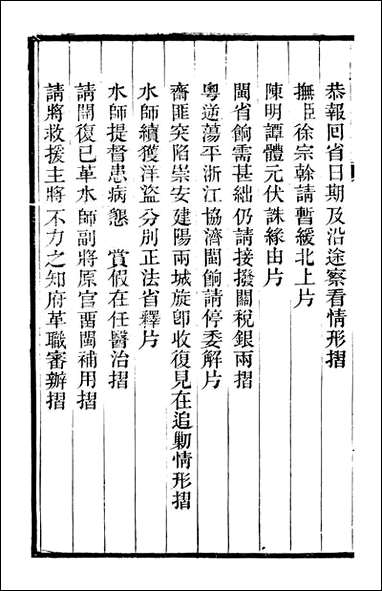 恭報回省日期及沿途察看情形摺
撫臣徐宗幹請暫緩北上片
陳明譚體元伏誅緣由片
閩省餉需甚絀仍請接撥關稅銀兩摺
粵逆蕩平浙江協濟閩餉請停委解片
齋匪突陷崇安建陽兩城旋卽收復見在追勦情形摺
水師續獲洋盜分別正法省釋片
水師提督患病懇　賞假在任醫治摺
請開復已革水師副將原官畱閩補用摺
請將救援主將不力之知府革職審辦摺